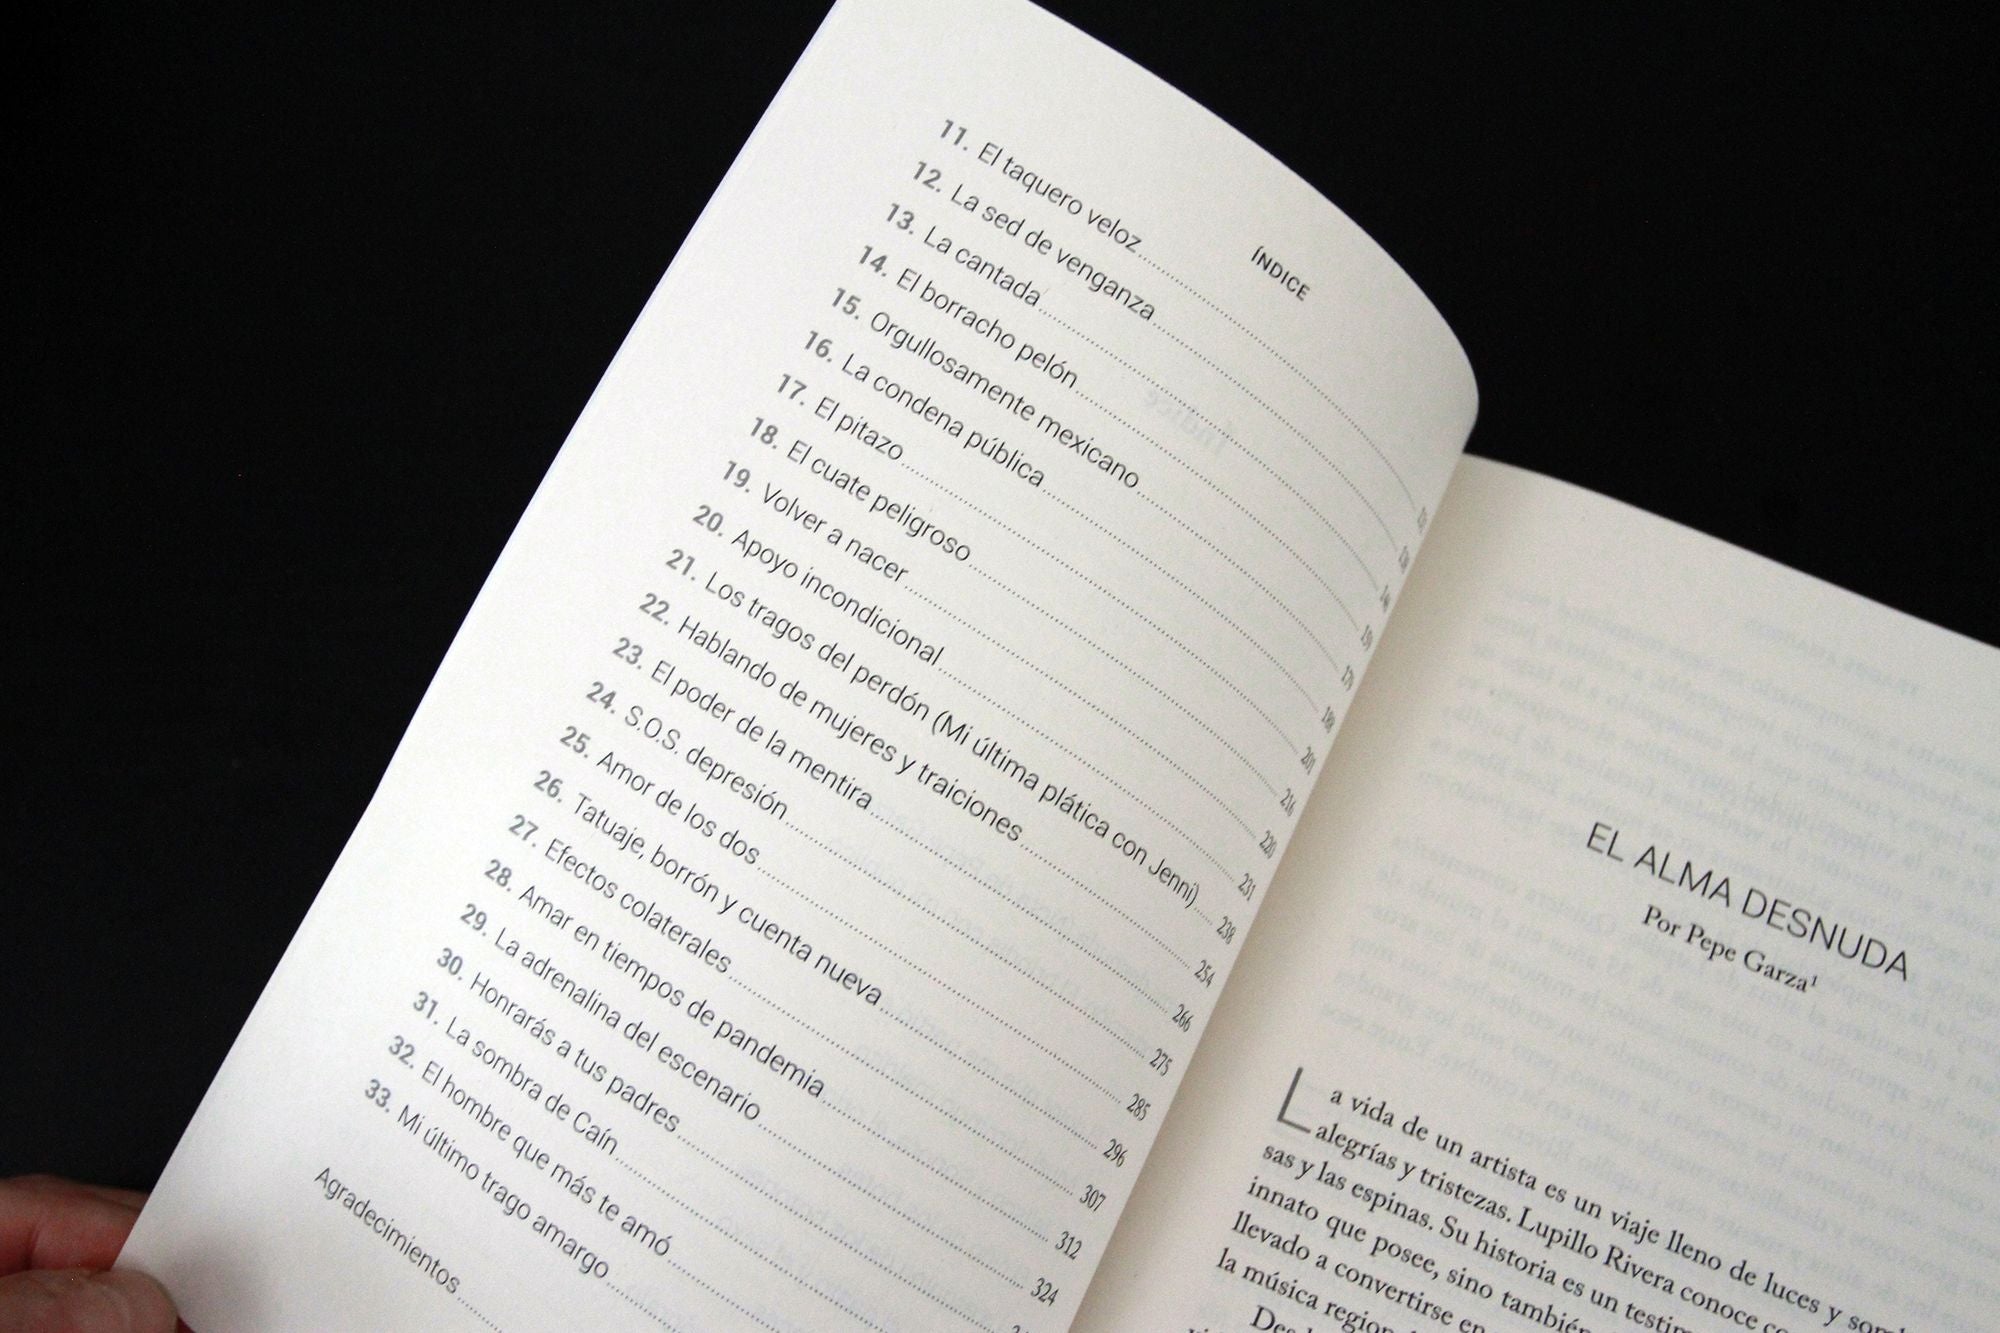 ÍNDICE
11. El taquero veloz
12. La sed de venganza
13. La cantada
14. El borracho pelón 159
15. Orgullosamente mexicano 179
16. La condena pública 188
17. El pitazo 201
18. El cuate peligroso 216
19. Volver a nacer 220
20. Apoyo incondicional 231
21. Los tragos del perdón (Mi última plática con Jenni) 238
22. Hablando de mujeres y traiciones 254
23. El poder de la mentira 266
24. S.O.S. depresión 275
25. Amor de los dos 285
26. Tatuaje, borrón y cuenta nueva 296
27. Efectos colaterales 307
28. Amar en tiempos de pandemia 312
29. La adrenalina del escenario 324
30. Honrarás a tus padres
31. La sombra de Caín
32. El hombre que más te amó
33. Mi último trago amargo
Agradecimientos
EL ALMA DESNUDA
Por Pepe Garza¹
La vida de un artista es un viaje lleno de luces y
alegrías y tristezas. Lupillo Rivera conoce
sas y las espinas. Su historia es un
innato que posee, sino también
llevado a convertirse en
la música